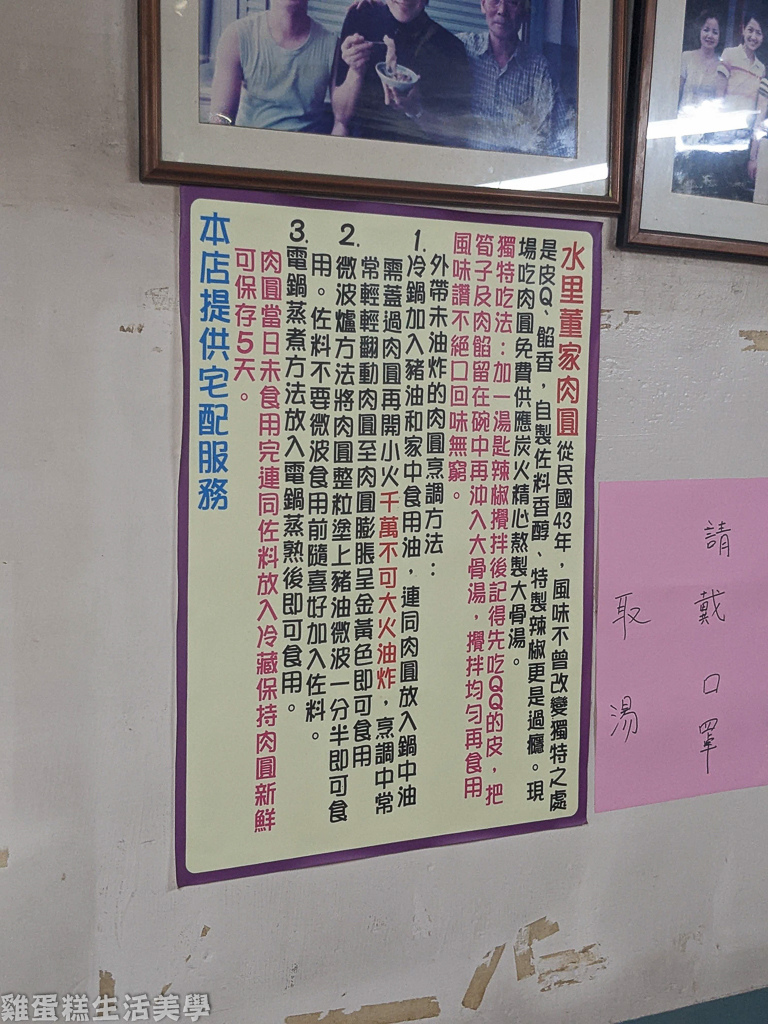 水里董家肉圓 從民國43年，風味不曾改變獨特之處
是皮Q、餡香，自製佐料香醇、特製辣椒更是過癮。現
場吃肉圓免費供應炭火精心熬製大骨湯。
獨特吃法：加一湯匙辣椒攪拌後記得先吃QQ的皮，把
筍子及肉餡留在碗中再沖入大骨湯，攪拌均勻再食用
風味讚不絕口回味無窮。
外帶未油炸的肉圓烹調方法：
1.冷鍋加入豬油和家中食用油，連同肉圓放入鍋中油
需蓋過肉圓再開小火千萬不可大火油炸，烹調中常
常輕輕翻動肉圓至肉圓膨脹呈金黃色即可食用
2.微波爐方法將肉圓整粒塗上豬油微波一分半即可食
用。佐料不要微波食用前隨喜好加入佐料。
3.電鍋蒸煮方法放入電鍋蒸熟後即可食用。
肉圓當日未食用完連同佐料放入冷藏保持肉圓新鮮
可保存5天。
本店提供宅配服務
請戴口罩
取湯
雞蛋糕生活美學